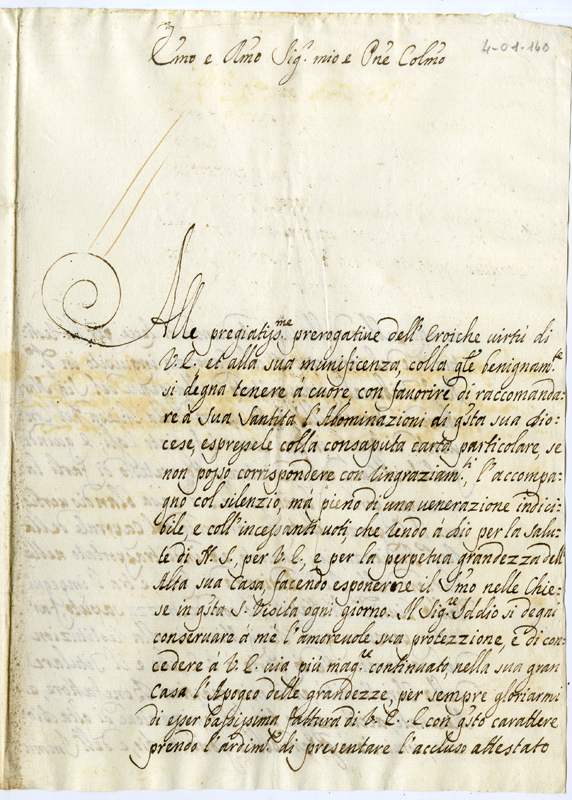 Emo e Rmo Sig.r mio e Pne Colmo
4-01-140
Alle pregiatiss.me prerogative dell' Eroiche virtù di
V. E., et alla sua munificenza, colla qle benignam.te
si degna tenere à cuore con favorire di raccomanda-
re à Sua Santità l' Abominazioni di qsta sua Dio-
cese, espressele colla consaputa carta particolare, se
non posso corrispondere con ringraziam.ti, l' accompa-
gno col silenzio, mà pieno di una venerazione indici-
bile, e coll' incessanti voti, che rendo à Dio per la salu-
te di N. S., per V. E., e per la perpetua grandezza dell'
Alta sua Casa, facendo esponere il Smo nelle Chie-
se in qsta S. Visita ogni giorno. Il Sig.re Iddio si degni
conservare à mè l' amorevole sua protezzione, e di con-
cedere à V. E. via più mag.re continuato, nella sua gran
Casa l' Apogeo delle grandezze, per sempre gloriarmi
di esser bassissima fattura di V. E. E con qsto carattere
prendo l' ardim.to di presentare l' accluso attestato